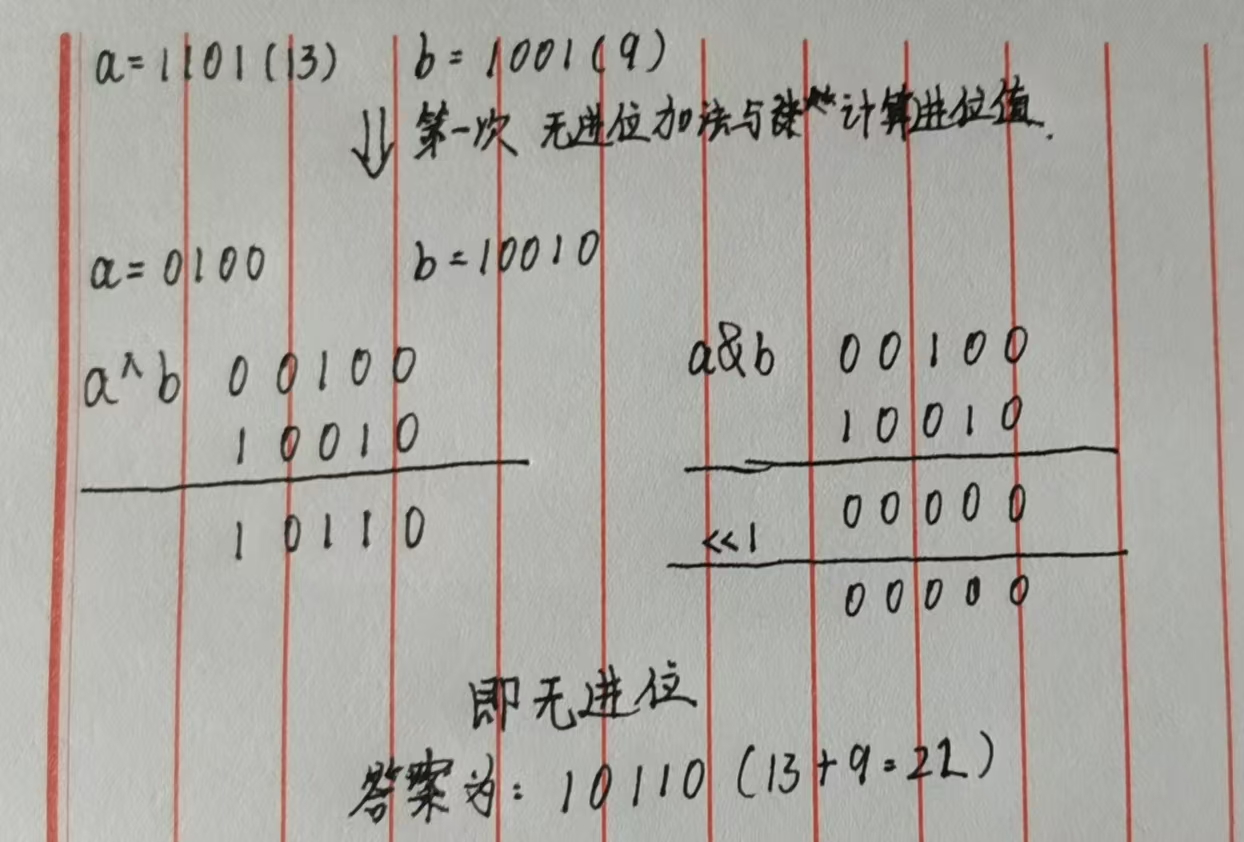 a=1101(13) b=1001(9)
⇓ 第一次 无进位加法与 计算进位值.
a=0100 b=10010
a^b 00100
10010
10110
a&b 00100
10010
00000
<<1
00000
即无进位
答案为: 10110 (13+9=22)